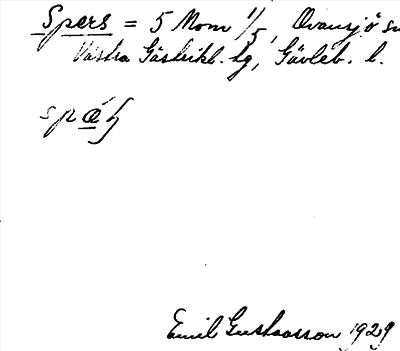 Spers = 5 Mom 1/5, Ovansjö sn
Västra Gästrikl. hg, Gävleb. l.
spǽ
Emil Gustavsson 1929